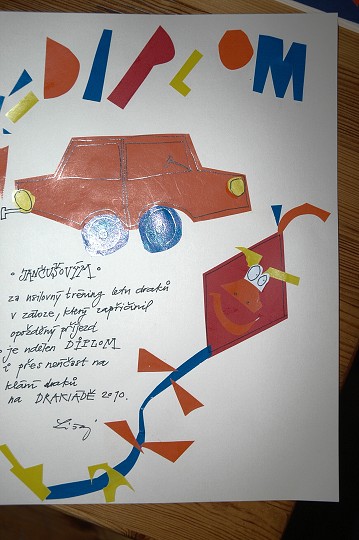 DIPLOM
"JANČUŠOVÝM"
za usilovný tréning letu draků
v záloze, který zapříčinil
opožděný příjezd
je udělen DIPLOM
i přes neúčast na
klání draků
na DRAKIÁDĚ 2010.